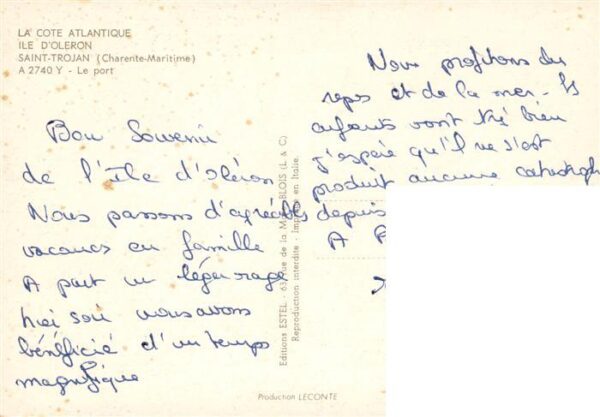 LA COTE ATLANTIQUE
ILE D'OLERON
SAINT-TROJAN (Charente-Maritime)
A 2740 Y - Le port
Bon Souvenir
de l'île d'Oléron
Nous passons d'agréables
vacances en famille
A part un léger orage
hier soir nous avons
bénéficié d'un temps
magnifique
Editions ESTEL - 63, rue de la M BLOIS (L. & C.)
Reproduction interdite - Imprimé en Italie.
Nous profitons du
repos et de la mer - ls
enfants vont trè bien
J'espère qu'il ne s'est
produit aucune catastroph
depuis
A
Production LECONTE